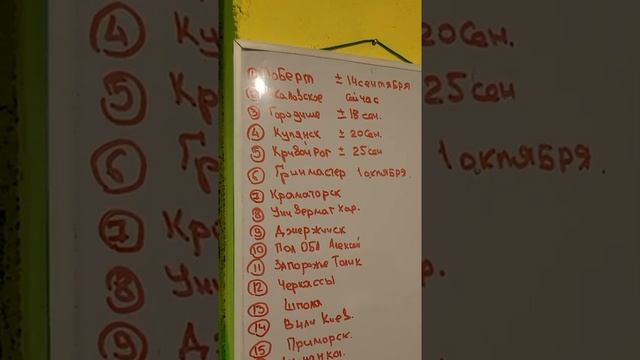 ① Роберт ± 14 сентября
② каловское сейчас
③ Городище ± 18 сен.
④ Купянск ± 20 сен.
⑤ Кривой Рог ± 25 сен
⑥ Гринмастер 1 октября.
⑦ Краматорск
⑧ Универмаг Хар.
⑨ Джержинск
⑩ Пол обл Алексей
11 Запорожье Толик
12 Черкассы
13 Шпола
14 Вили Киев.
15 Приморск.